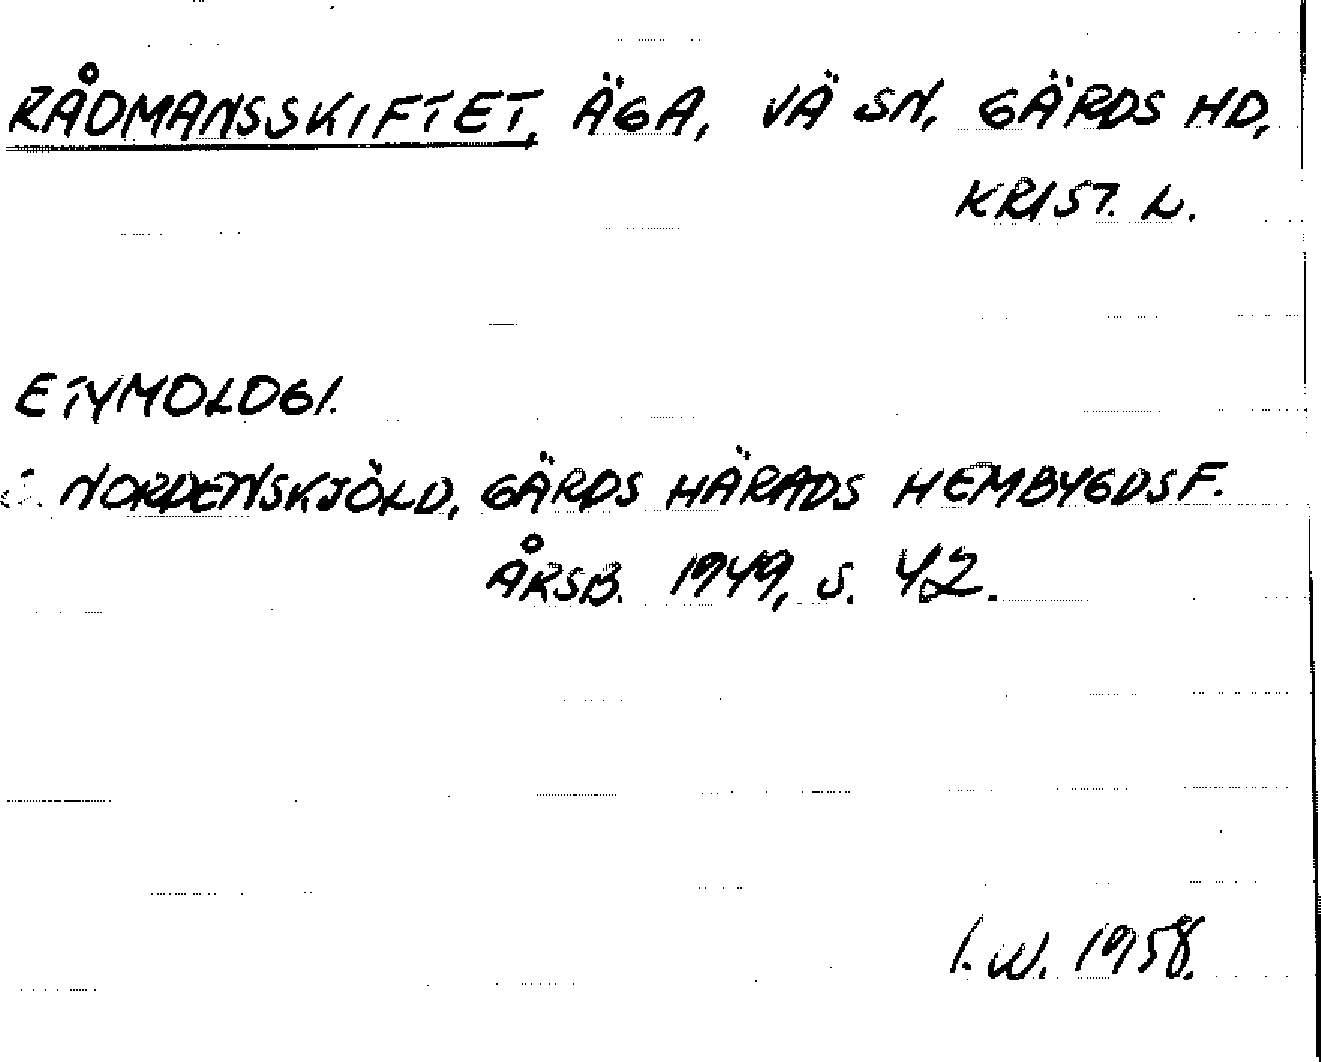 RÅDMANSSKIFTET, ÄGA, VÄ SN, GÄRDS HD,
KRIST. L.
ETYMOLOGI.
NORDENSKJÖLD, GÄRDS HÄRADS HEMBYGDSF.
ÅRSB. 1949, S. 42.
I. W. 1958.